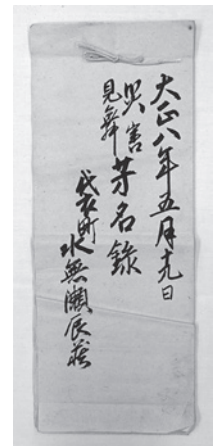 大正八年五月十九日
災害
見舞
芳名錄
町
水無瀬辰蔵